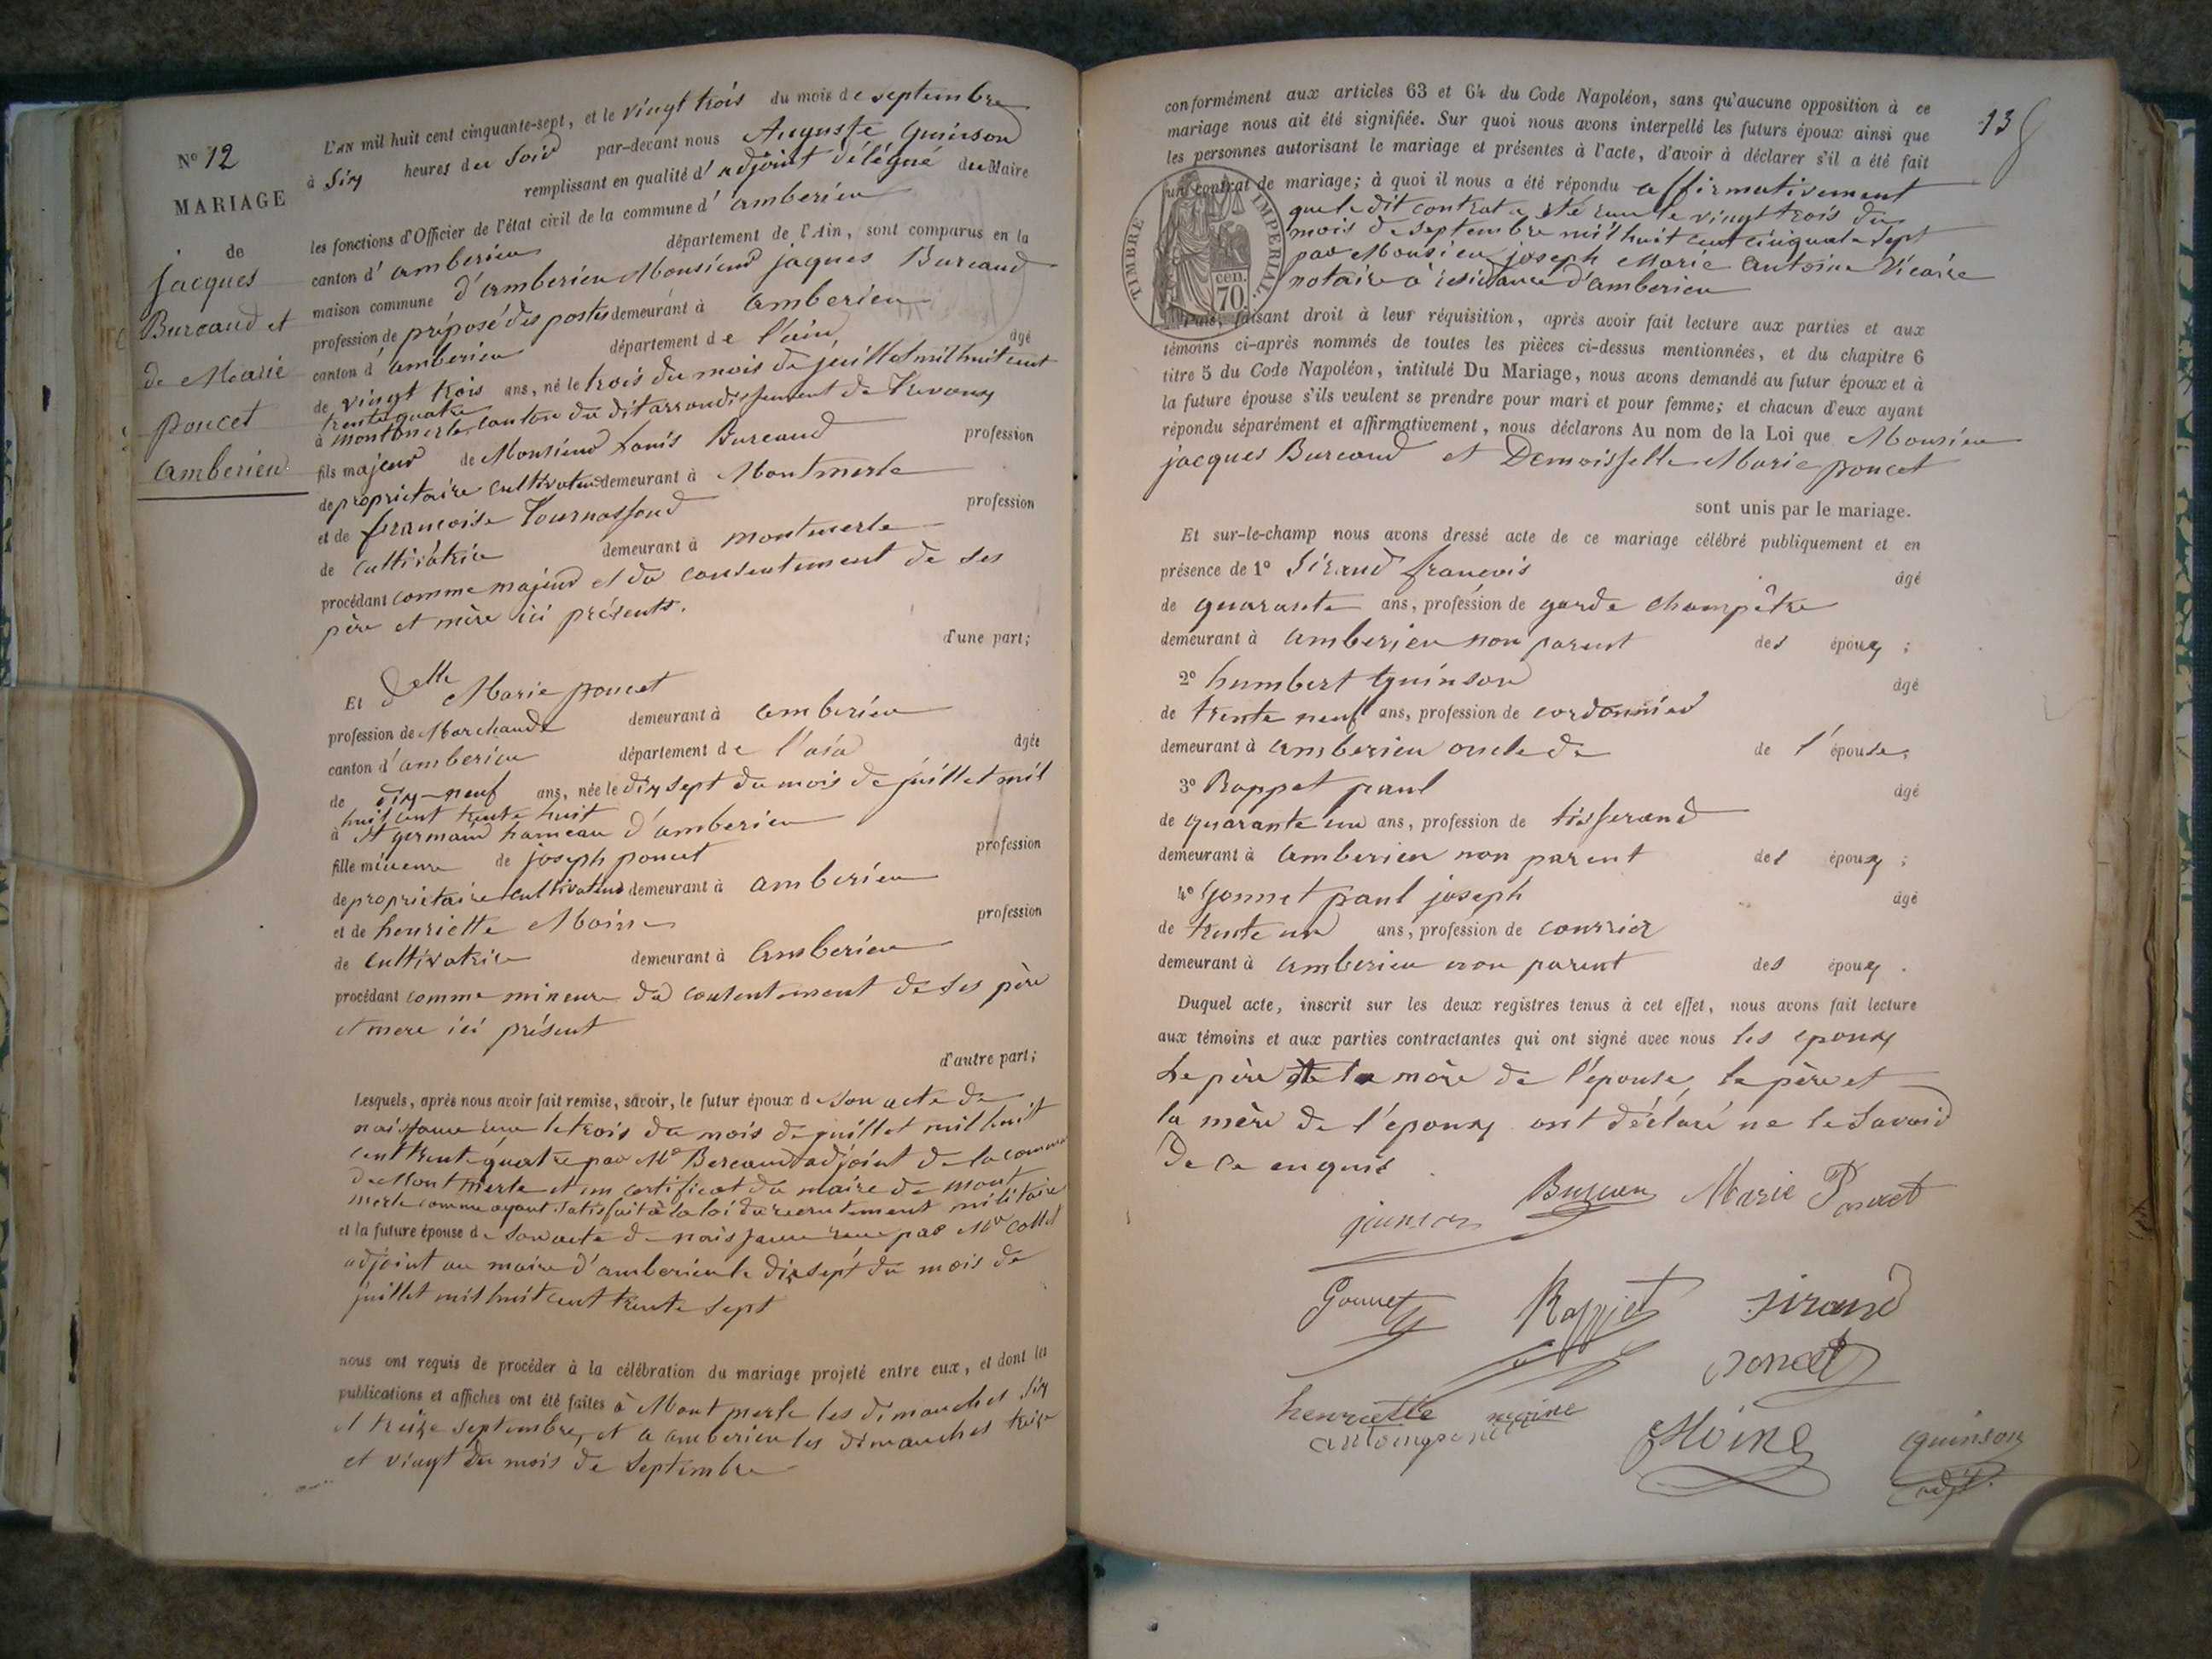 N° 12
MARIAGE
de
jacques
Bureaud et
de Marie
poncet
amberieu
L'AN mil huit cent cinquante-sept, et le vingt trois du mois de septembre
à six heures du soir par-devant nous Auguste Quinson
remplissant en qualité d'adjoint délégué du Maire
les fonctions d'Officier de l'état civil de la commune d'amberieu
canton d'amberieu département de l'Ain, sont comparus en la
maison commune d'amberieu Monsieur jaques Bureaud
profession de préposé des postes demeurant à amberieu
canton d'amberieu département de l'ain âgé
de vingt trois ans, né le trois du mois de juillet mil huit cent
trente quatre
à montmerle canton du dit arrondissement de Trevoux
fils majeur de Monsieur Louis Bureaud profession
de propriétaire cultivateur demeurant à Montmerle
et de françoise Tournassoud profession
de cultivatrice demeurant à montmerle
procédant comme majeur et du consentement de ses
père et mère ici présents.
d'une part;
Et delle Marie poncet
profession de Marchande demeurant à amberieu
canton d'amberieu département de l'ain âgée
de dix-neuf ans, née le dix sept du mois de juillet mil
huit cent trente huit
à St germain hameau d'amberieu
fille mineure de joseph poncet profession
de propriétaire cultivateur demeurant à amberieu
et de henriette Moine profession
de cultivatrice demeurant à amberieu
procédant comme mineure du contentement de ses père
et mere ici présent
d'autre part;
Lesquels, après nous avoir fait remise, savoir, le futur époux de son acte de
naissance reçu le trois du mois de juillet mil huit
cent trente quatre par Mr Bereaud adjoint de la commune
de Montmerle et un certificat du maire de mont
merle comme ayant satisfait à la loi du recrutement militaire
et la future épouse de son acte de naissance reçu par Mr Collet
adjoint au maire d'amberieu le dix sept du mois de
juillet mil huit cent trente sept
nous ont requis de procéder à la célébration du mariage projeté entre eux, et dont les
publications et affiches ont été faites à Montmerle les dimanches six
et treize septembre, et a amberieu les dimanches treize
et vingt du mois de septembre
13
conformément aux articles 63 et 64 du Code Napoléon, sans qu'aucune opposition à ce
mariage nous ait été signifiée. Sur quoi nous avons interpellé les futurs époux ainsi que
les personnes autorisant le mariage et présentes à l'acte, d'avoir à déclarer s'il a été fait
un contrat de mariage; à quoi il nous a été répondu affirmativement
que le dit contrat a été reçu le vingt trois du
mois de septembre mil huit cent cinquante sept
par Monsieur joseph Marie Antoine Vicaire
notaire à residance d'amberieu
TIMBRE IMPERIAL
70 cen.
Puis, faisant droit à leur réquisition, après avoir fait lecture aux parties et aux
témoins ci-après nommés de toutes les pièces ci-dessus mentionnées, et du chapitre 6
titre 5 du Code Napoléon, intitulé Du Mariage, nous avons demandé au futur époux et à
la future épouse s'ils veulent se prendre pour mari et pour femme; et chacun d'eux ayant
répondu séparément et affirmativement, nous déclarons Au nom de la Loi que Monsieur
jacques Bureaud et Demoisselle Marie poncet
sont unis par le mariage.
Et sur-le-champ nous avons dressé acte de ce mariage célébré publiquement et en
présence de 1° Siraud françois âgé
de quarante ans, profession de garde champêtre
demeurant à amberieu non parent des époux ;
2° humbert Quinson âgé
de trente neuf ans, profession de cordonnier
demeurant à amberieu oncle de de l'épouse;
3° Rappet paul âgé
de quarante un ans, profession de tisserand
demeurant à amberieu non parent des époux ;
4° Gonnet paul joseph âgé
de trente un ans, profession de courrier
demeurant à amberieu non parent des époux .
Duquel acte, inscrit sur les deux registres tenus à cet effet, nous avons fait lecture
aux témoins et aux parties contractantes qui ont signé avec nous les epoux
Le père et la mère de l'épouse, le père et
la mère de l'époux ont déclaré ne le savoir
de ce enquis
quinson Bureau Marie Poncet
Gonnet Rappet siraud
poncet
henriette moine
Moine quinson
adjt.